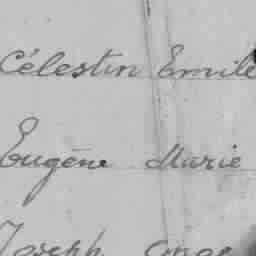 Célestin Emile
Eugène Marie
Joseph